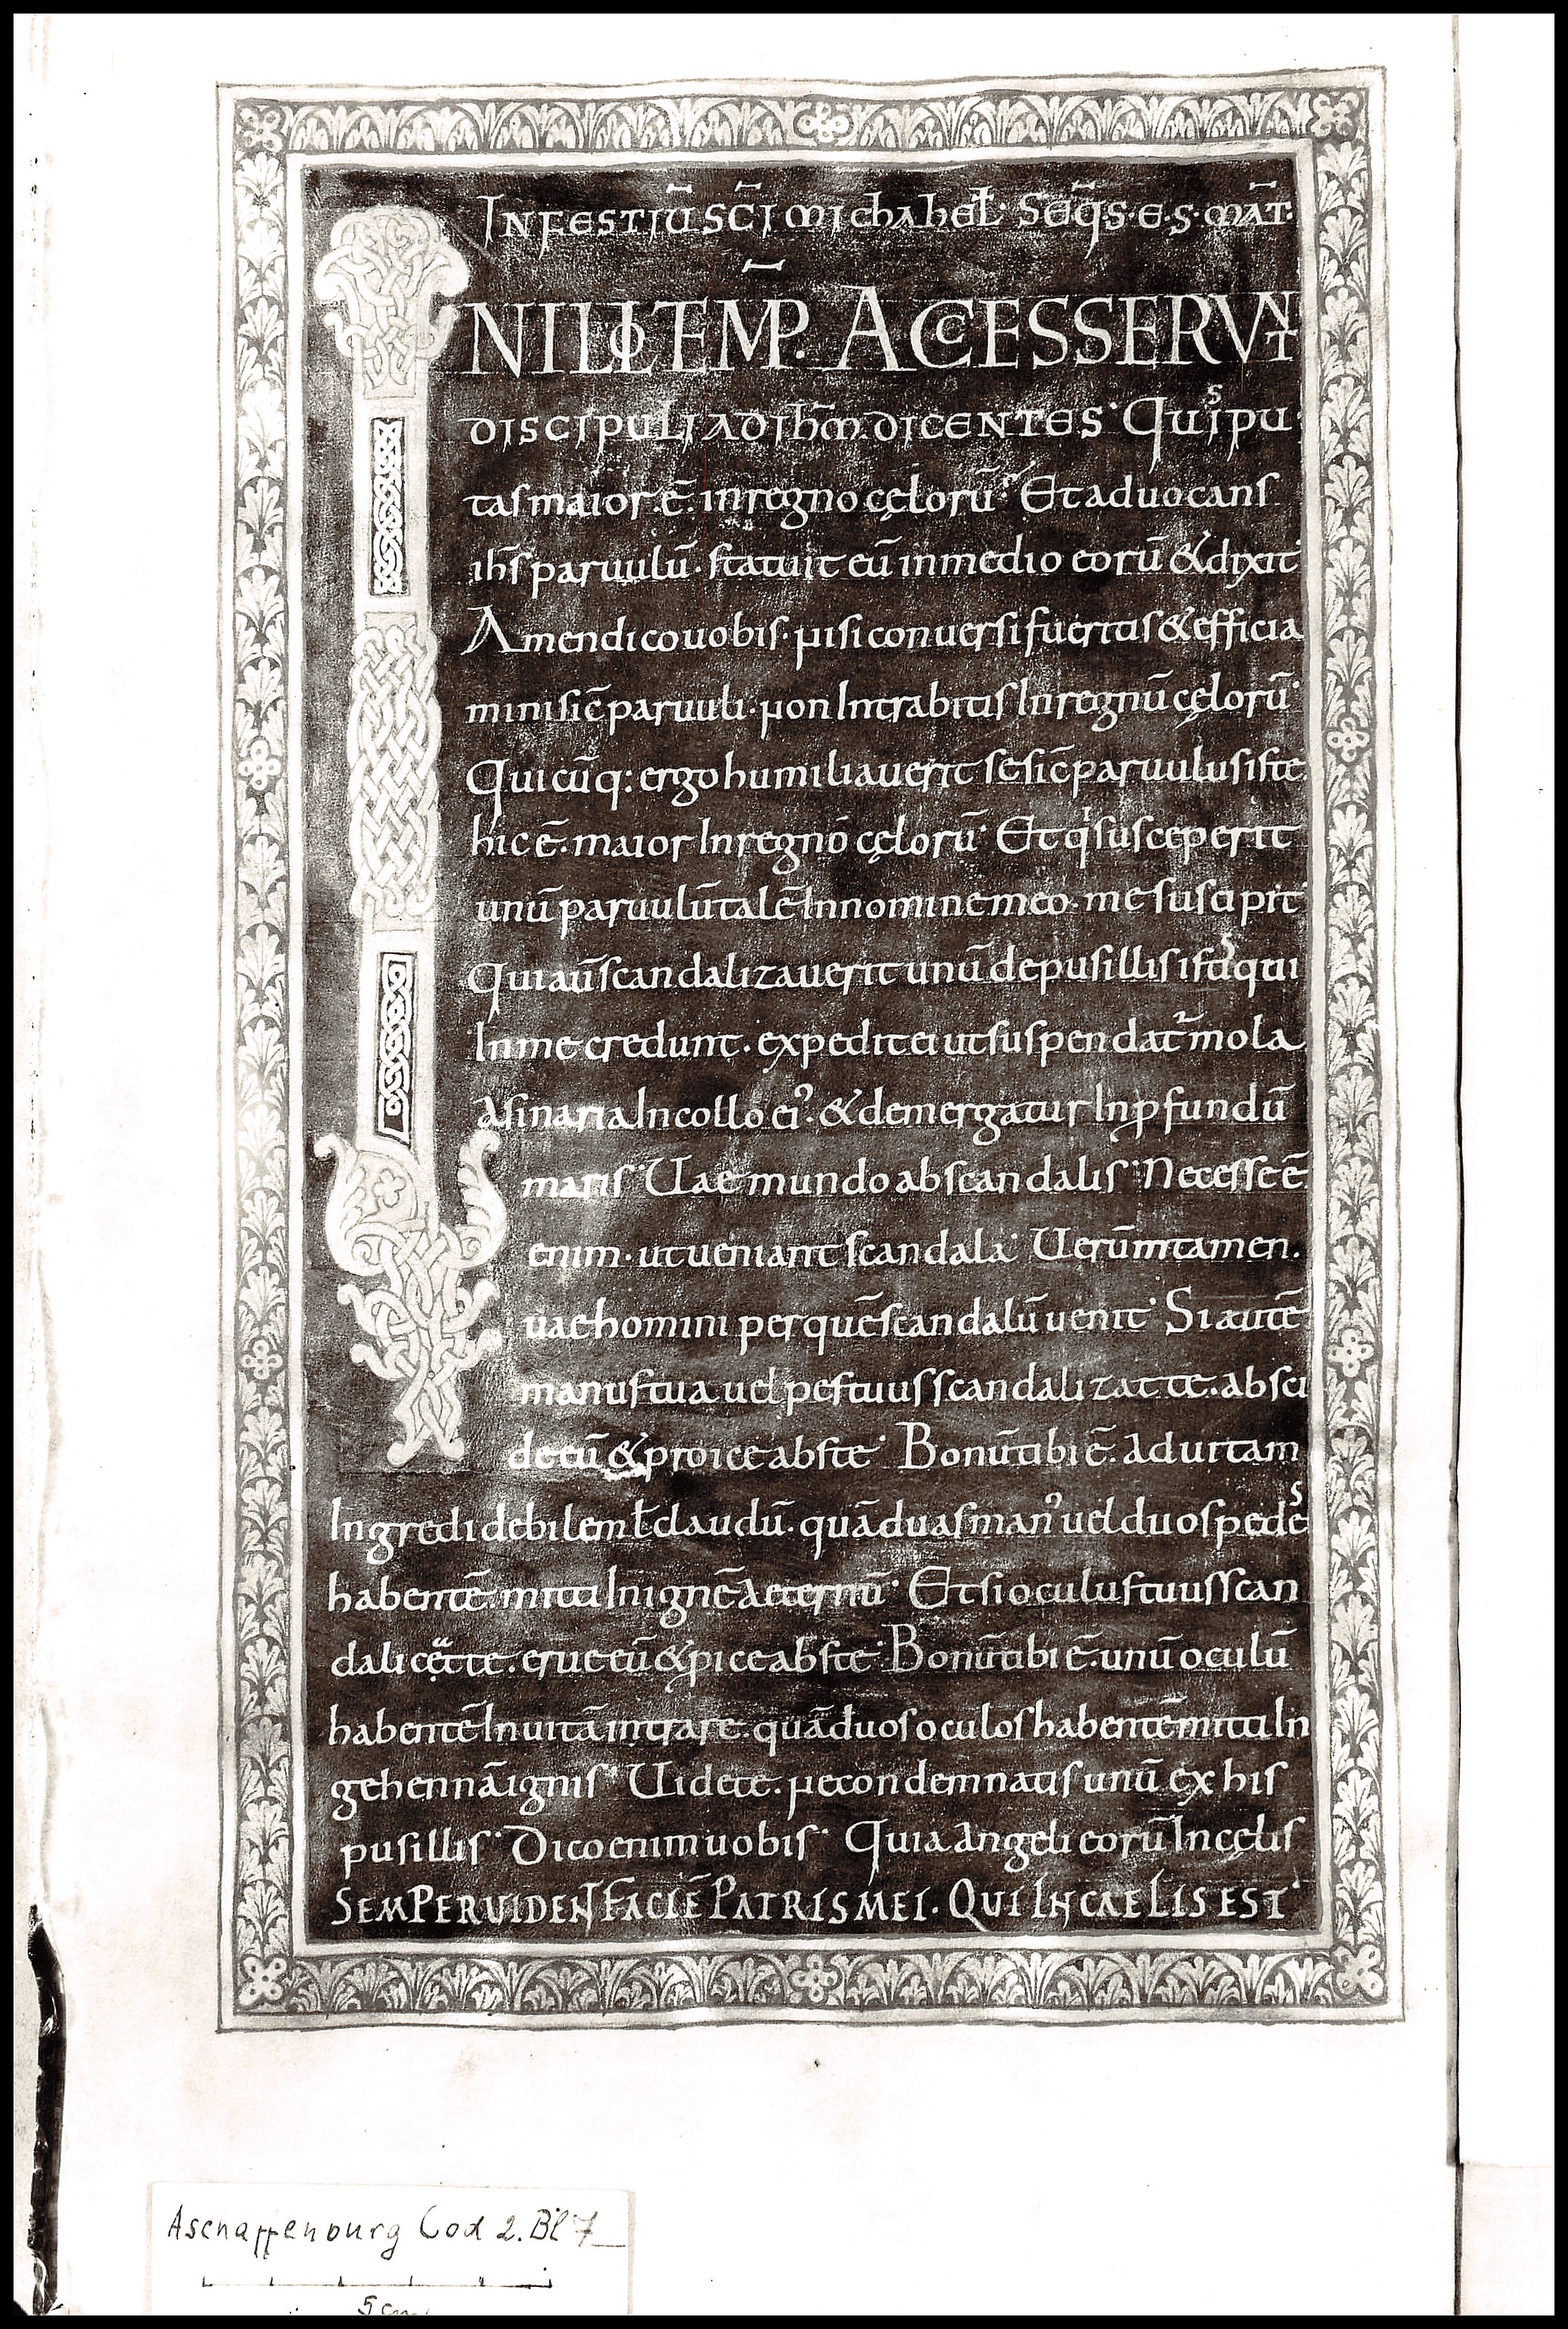 IN FESTIŪ SC̄I MICHAHEL̄· SEQ̄·S·E·S· MĀT·
IN ILLO TEM̄P· ACCESSERUNT
DISCIPULI AD IHM̄· DICENTES· Quis pu
tas maior·ē· in regno cęlorū· Et aduocans
ihs̄ paruulū· statuit eū in medio eorū & dixit
Amen dico uobis· nisi conuersi fueritis & efficia
mini sic̄ paruuli· non Intrabitis In regnū cęlorū·
Quicūq: ergo humiliauerit se sic̄ paruulus iste
hic ē· maior In regnō cęlorū· Et qi susceperit
unū paruulū talē In nomine meo· me suscipit
Qui aū scandalizauerit unū de pusillis istis qui
In me credunt· expedit ei ut suspendat̄ mola
asinaria In collo ei᾽· & demergatur In ꝓfundū
maris· Uae mundo ab scandalis· Necesse ē
enim· ut ueniant scandala· Uerūmtamen·
uae homini per quē scandalū uenit· Si autē
manus tua uel pes tuus scandalizat te· absci
de eū & proice abs te· Bonū tibi ē· ad uitam
Ingredi debilem ł claudū· quā duas man᾽ uel duos pedes
habentē· mitti In ignē aeternū· Et si oculus tuus scan
dalicęat te· erue eū & ꝓice abs te· Bonū tibi ē· unū oculū
habentē In uitā intrare· quā duos oculos habentē mitti In
gehennā ignis· Uidete· ne condemnatis unū ex his
pusillis· Dico enim uobis· Quia angeli eorū In cęlis
SEMPER UIDENT FACIĒ PATRIS MEI· QUI IN CAELIS EST·
Aschaffenburg Cod 2. Bl 7
5 cm